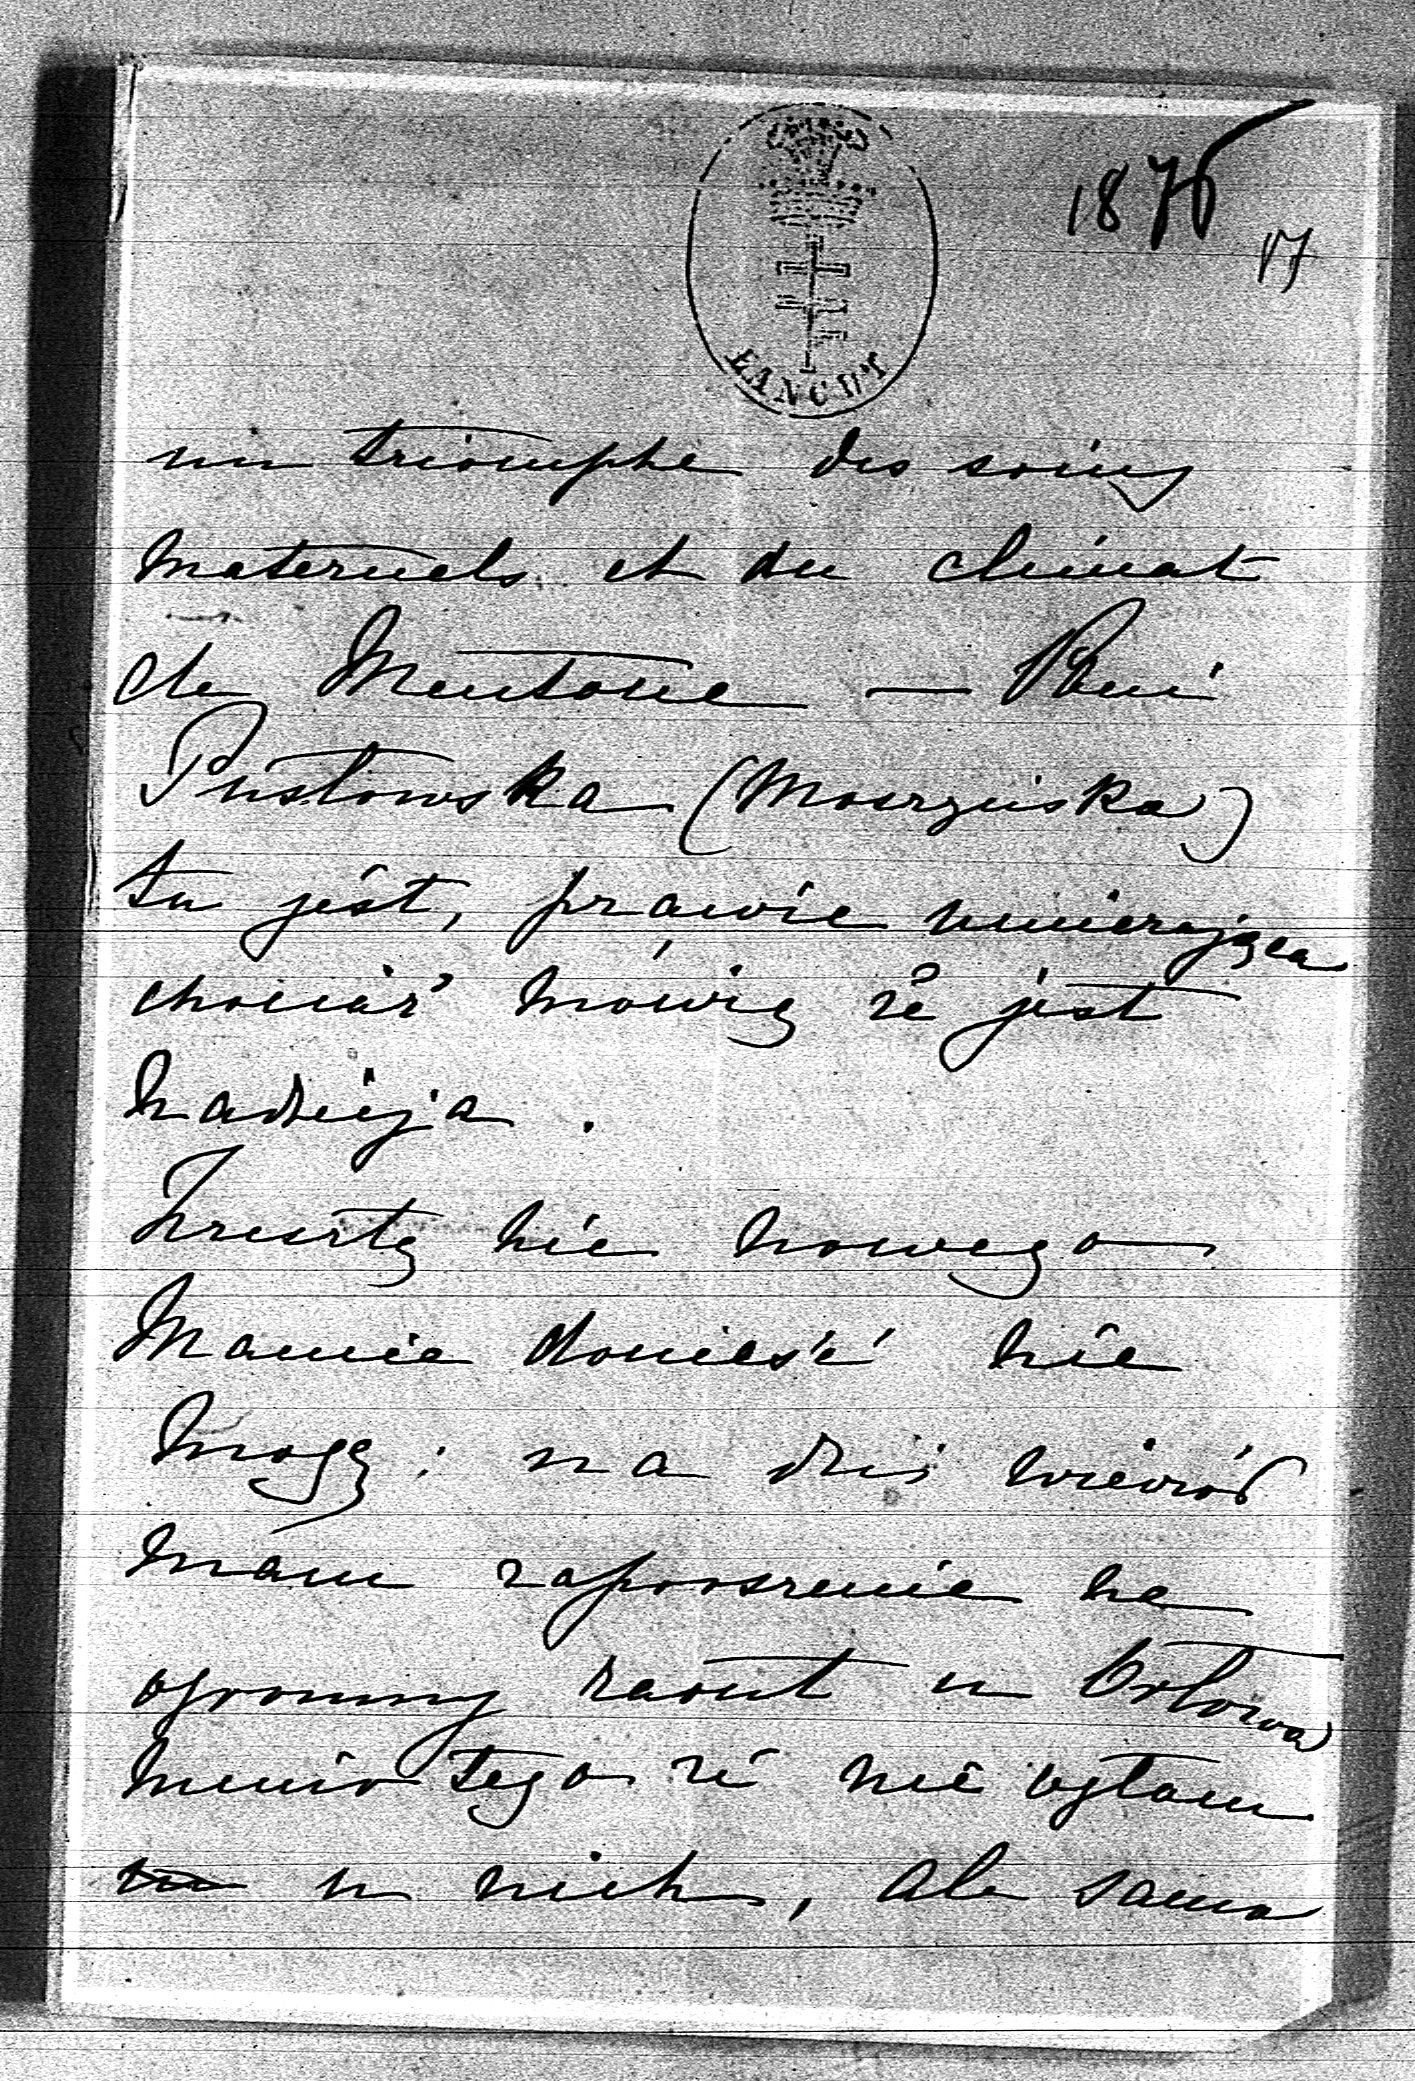 1876
17
ŁAŃCUT
un triomphe des soins
maternels et du climat
de Mentone — Pani
Pusłowska (Moszyńska)
tu jést, prawie umierająca
chociaż mówią żé jést
nadzieja.
Zresztą nic nowego
Mamie donieść nie
mogę: na dziś wieczór
mam zaproszenie na
ogromny raout u Orłowa
mimo tego żé nié byłam
u nich, ale sama